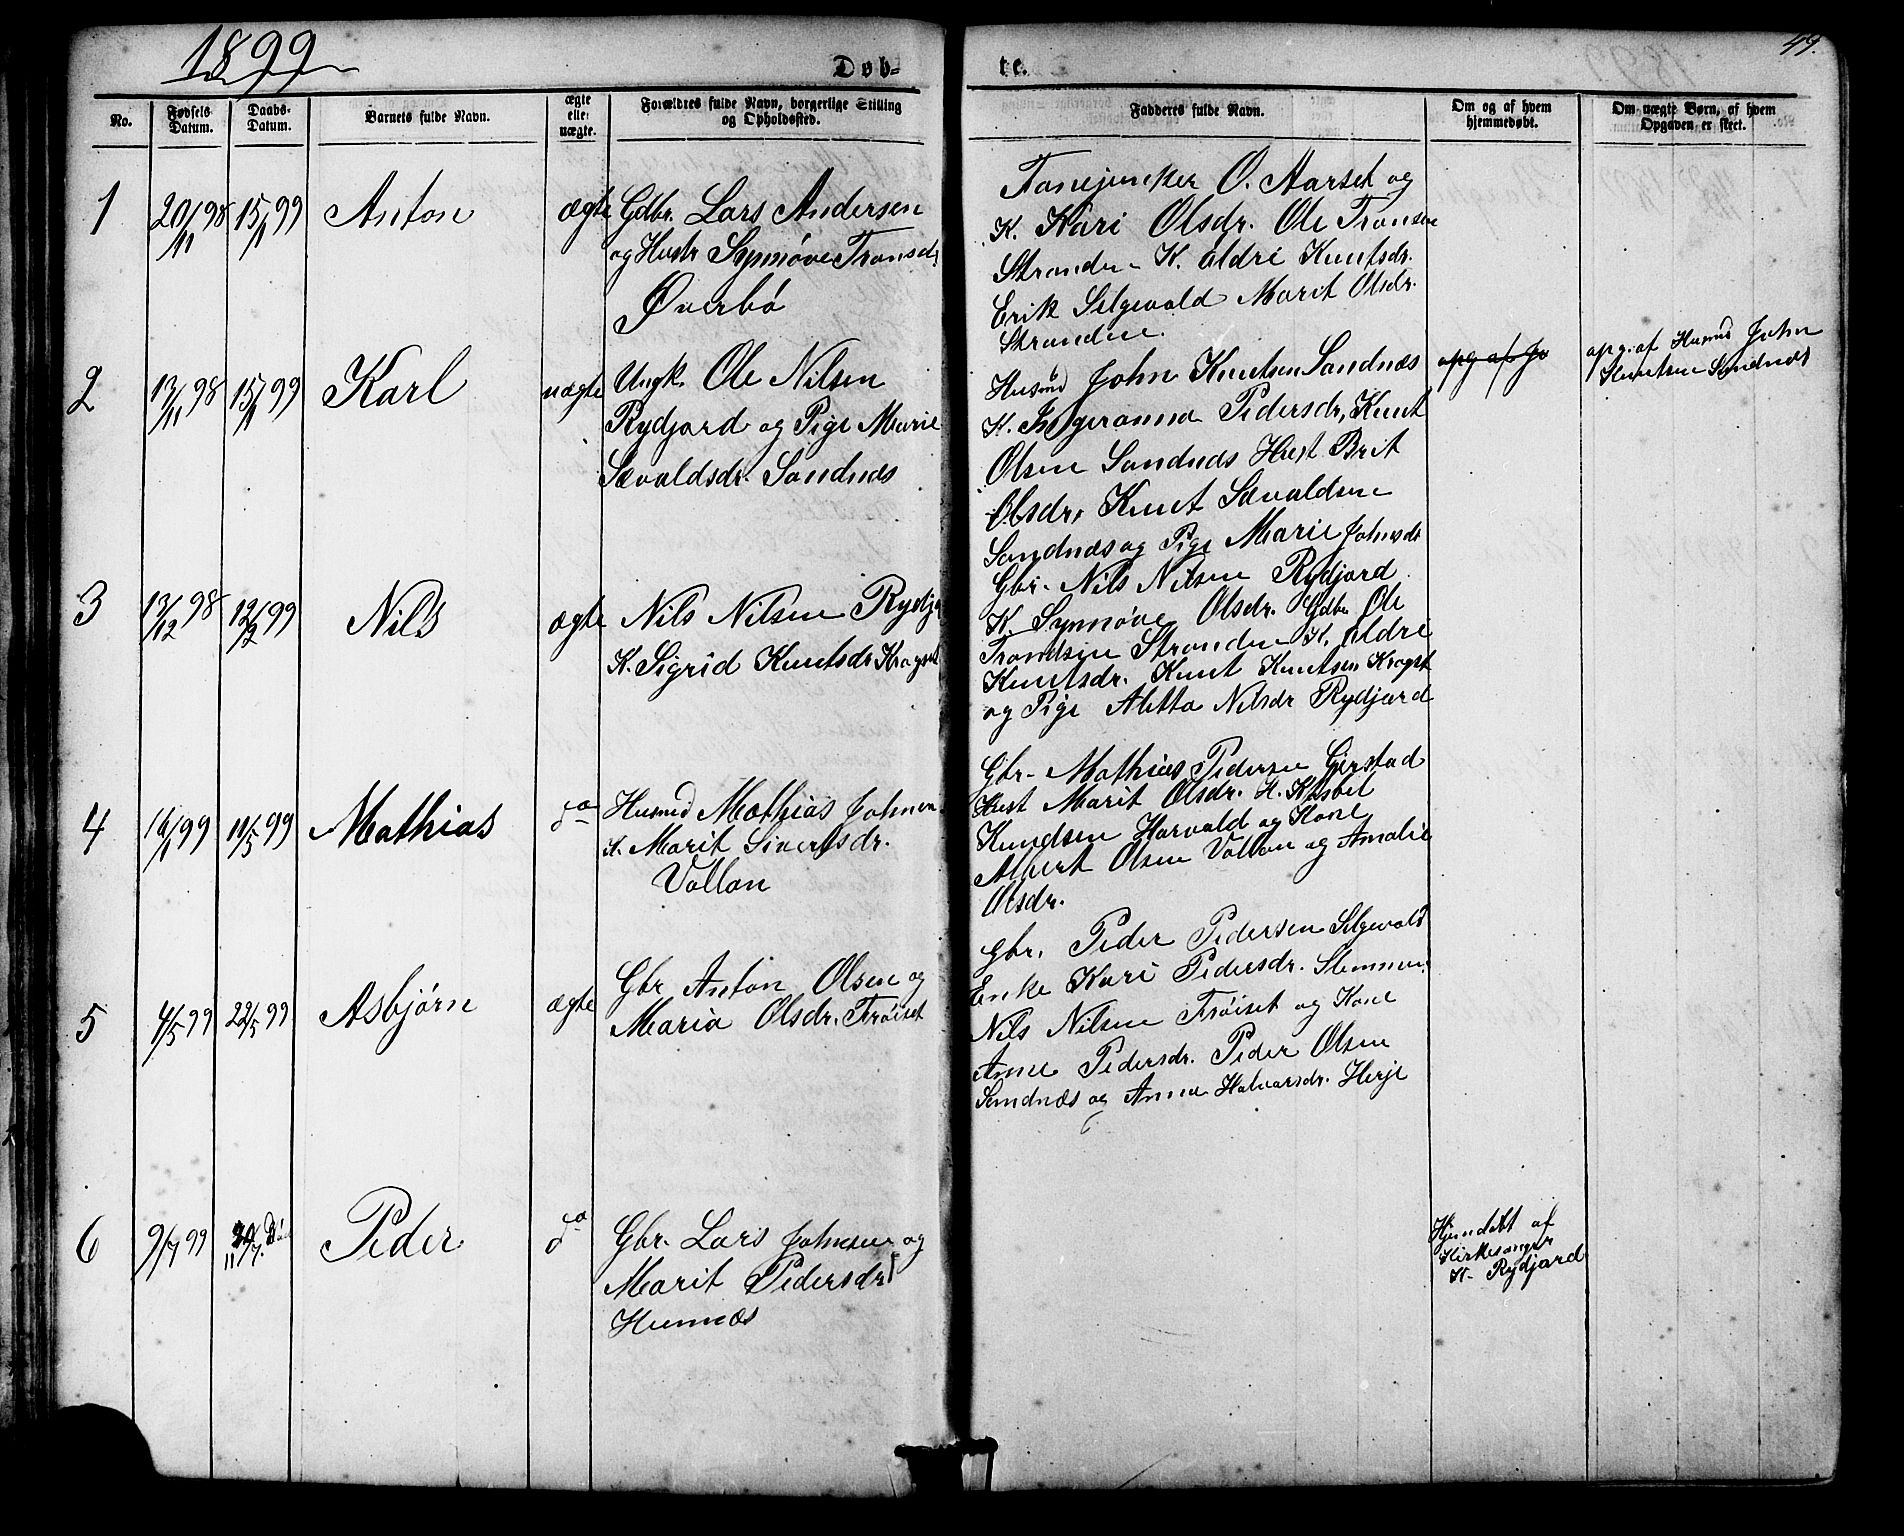 1899
Døb-
te.
49.
No.
Fødsels Datum.
Daabs-Datum.
Barnets fulde Navn.
ægte elle: uægte.
Forældres fulde Navn, borgerlige Stilling og Opholdssted.
Faddere​s fulde Navn.
Om og af hvem hjemmedøbt.
Om uægte Børn, af hvem Opgaven er skeet.
1
20/11 98
15/1 99
Anton
ægte
Gdbr. Lars Andersen
og Hustr Synnøve Tronsd.
Øverbø
Fanejunker O. Aarset og
K. Kari Olsdr. Ole Tronsen
Stranden K. Eldri Knutsdr.
Erik Selgevald Marit Olsdr.
Stranden.
2
13/11 98
15/1 99
Karl
uægte
Ungk. Ole Nilsen
Rydjord og Pige Marie
Sævaldsdr. Sandnæs
Husmd John Knutsen Sandnæs
K. Ingeranna Pedersdr, Knut
Olsen Sandnæs Hust Brit
Olsdr, Knut Sævaldsen
Sandnæs og Pige Marie Johnsdr
opg af Jo
opg. af Husmd John
Knutsen Sandnæs
3
13/12 98
12/2 99
Nils
ægte
Nils Nilsen Rydj
K. Sigrid Knutsdr Kragset
Gbr. Nils Nilsen Rydjord
K. Synnøve Olsdr. Gdbr. Ole
Trondsen Stranden K. Eldri
Knutsdr. Knut Knutsen Kragst
og Pige Aletta Nilsdr Rydjord
4
16/1 99
11/5 99
Mathias
do
Husmd Mathias Johnsen
K. Marit Sivertsdr.
Vollan
Gbr. Mathias Pedersen Gjerstad
Hust Marit Olsdr. H. Kasbel
Kundsen Harvald og Kone
Albert Olsen Vollan og Amalie
Olsdr.
5
4/5 99
22/5 99
Asbjørn
ægte
Gbr Anton Olsen og
Maria Olsdr. Frøiset
Gbr. Peder Pedersen Selgevold
Enke Kari Pedersdr. Slemmen
Nils Nilsen Frøiset og Kone
Anne Pedersdr. Peder Olsen
Sandnæs og Anna Halvarsdr. Herje
6
9/7 99
11/7.
Peder
do
Gbr. Lars Johnsen og
Marit Pedersdr
Hunnæs
Hjemdøbt af
Kirkesanger
K. Rydjord